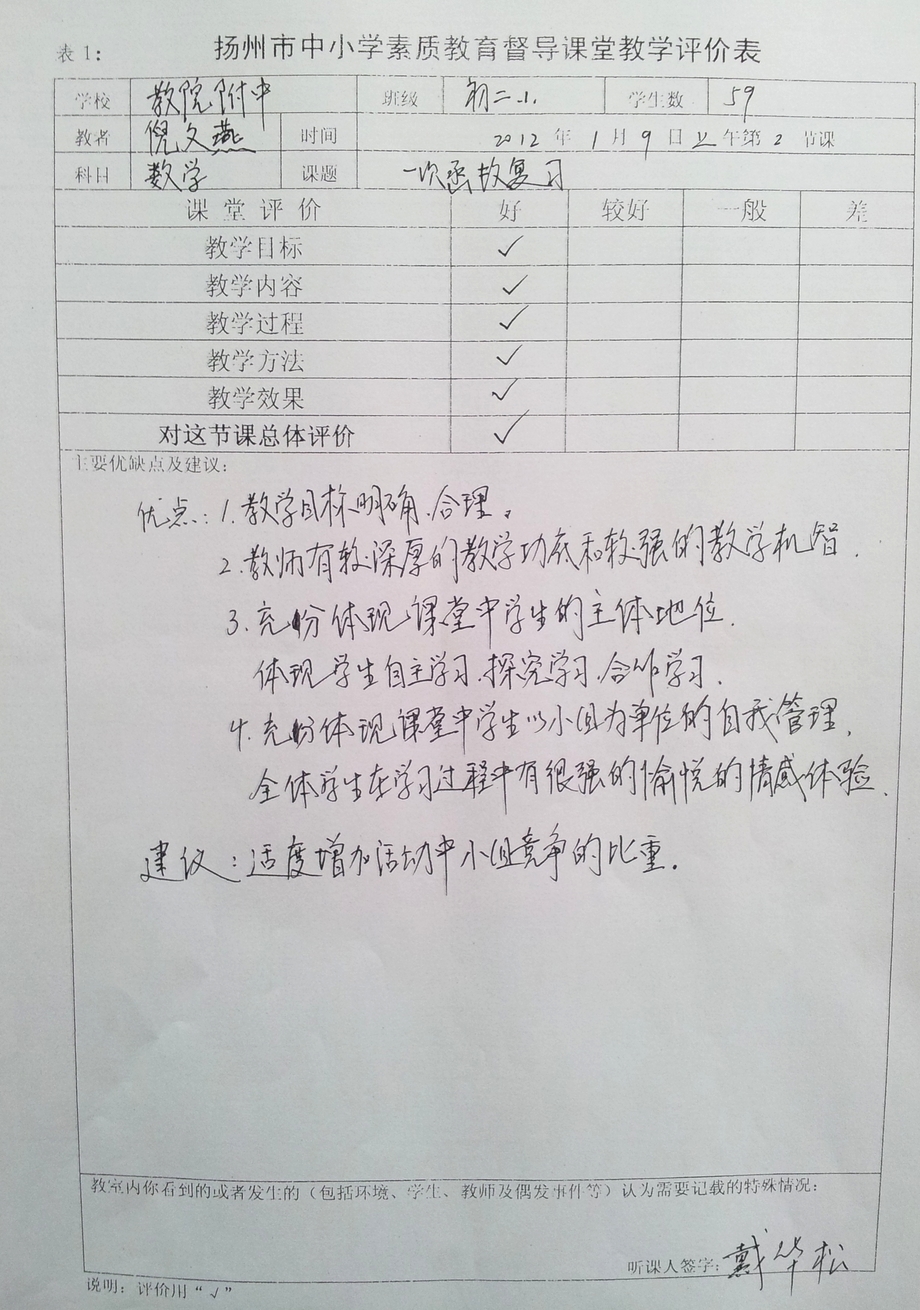 表1：
扬州市中小学素质教育督导课堂教学评价表
学校 教院附中 班级 初二.1. 学生数 59
教者 倪文燕 时间 2012 年 1 月 9 日 上 午第 2 节课
科目 数学 课题 一次函数复习
课堂评价 好 较好 一般 差
教学目标 ✓
教学内容 ✓
教学过程 ✓
教学方法 ✓
教学效果 ✓
对这节课总体评价 ✓
主要优缺点及建议：
优点：1.教学目标明确、合理。
2.教师有较深厚的教学功底和较强的教学机智.
3.充份体现课堂中学生的主体地位.
体现学生自主学习.探究学习.合作学习.
4.充份体现课堂中学生以小组为单位的自我管理.
全体学生在学习过程中有很强的愉悦的情感体验.
建议：适度增加活动中小组竞争的比重.
教室内你看到的或者发生的（包括环境、学生、教师及偶发事件等）认为需要记载的特殊情况：
听课人签字：戴华松
说明：评价用“√”